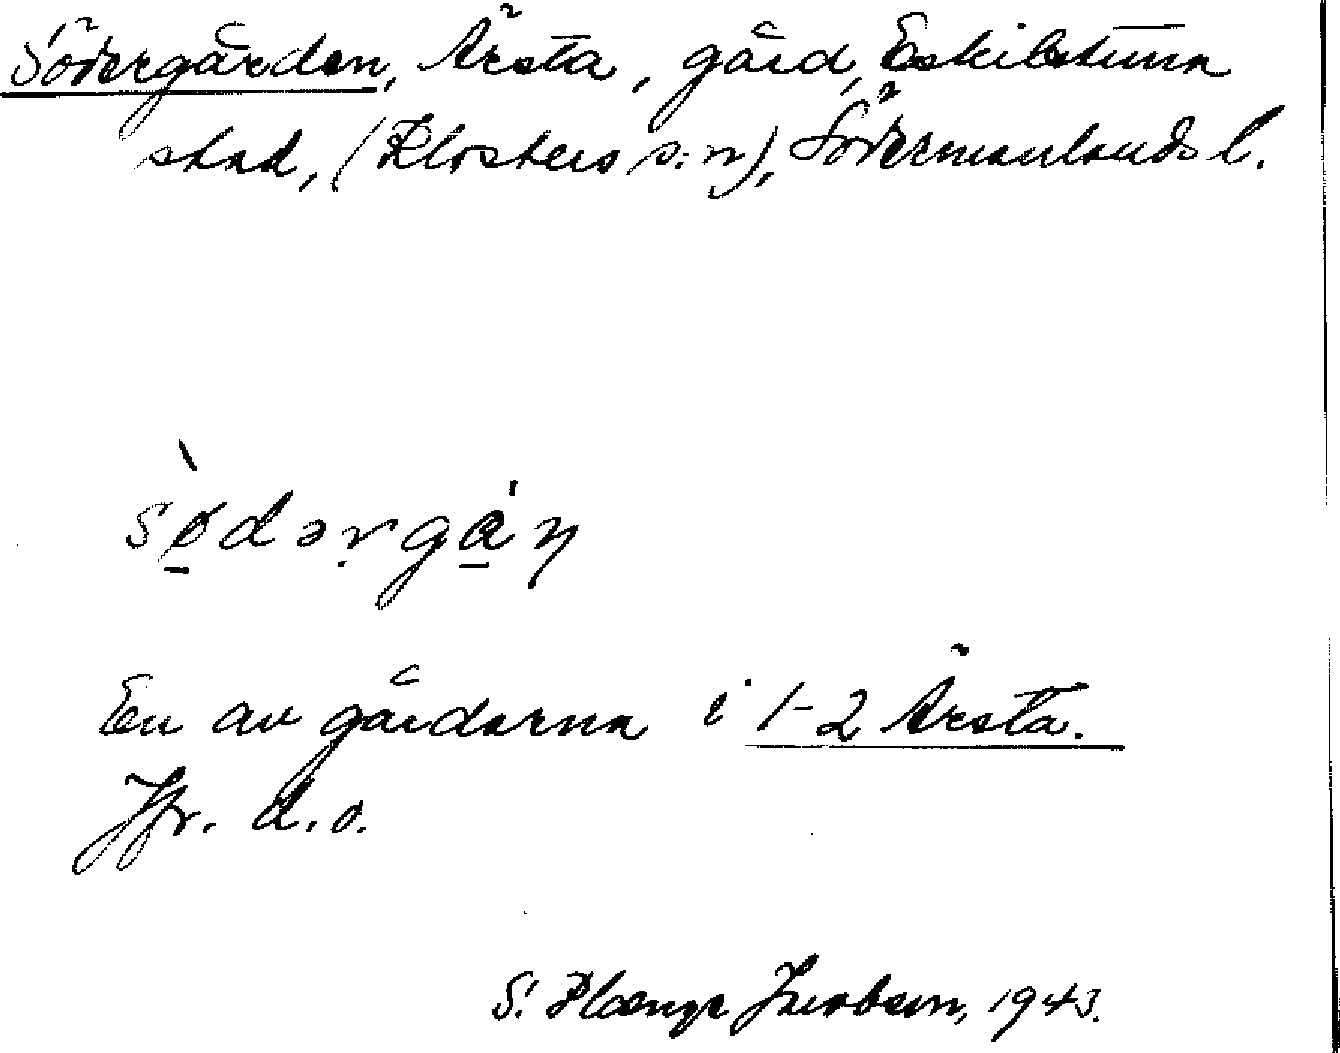 Södergården, Ärsta, gård, Eskilstuna
stad, (Klosters s:n), Södermanlands l.
sødərgán
En av gårdarna i 1-2 Ärsta.
Jfr. d.o.
S. Plœngr Jacobson, 1943.